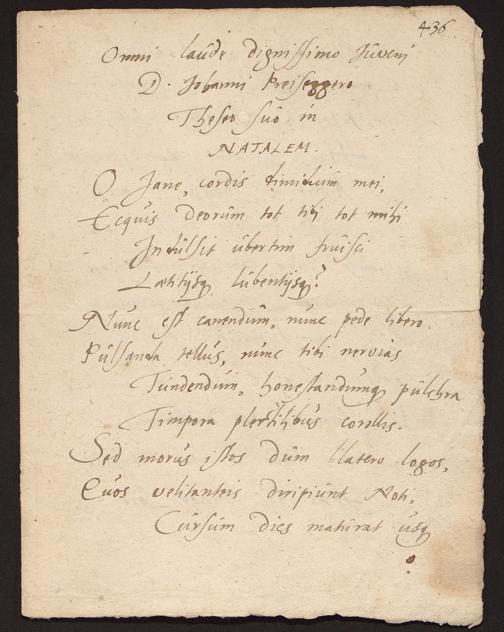 436
Omni laude dignissimo Iuveni
D. Johanni Preiseggero
Theseo suo in
NATALEM.
O Jane, cordis dimidium mei,
Ecquis deorum tot tibi tot mihi
Indulsit ubertim fruisci
Laetitijsq lubentijsq?
Nunc est canendum, nunc pede libero
Pulsanda tellus, nunc tibi nervias
Tundendum, honestandumq pulchra
Timpora plectilibus corollis.
Sed morus istos dum blatero logos,
Quos velitantis diripiunt Noti,
Cursum dies maturat usq